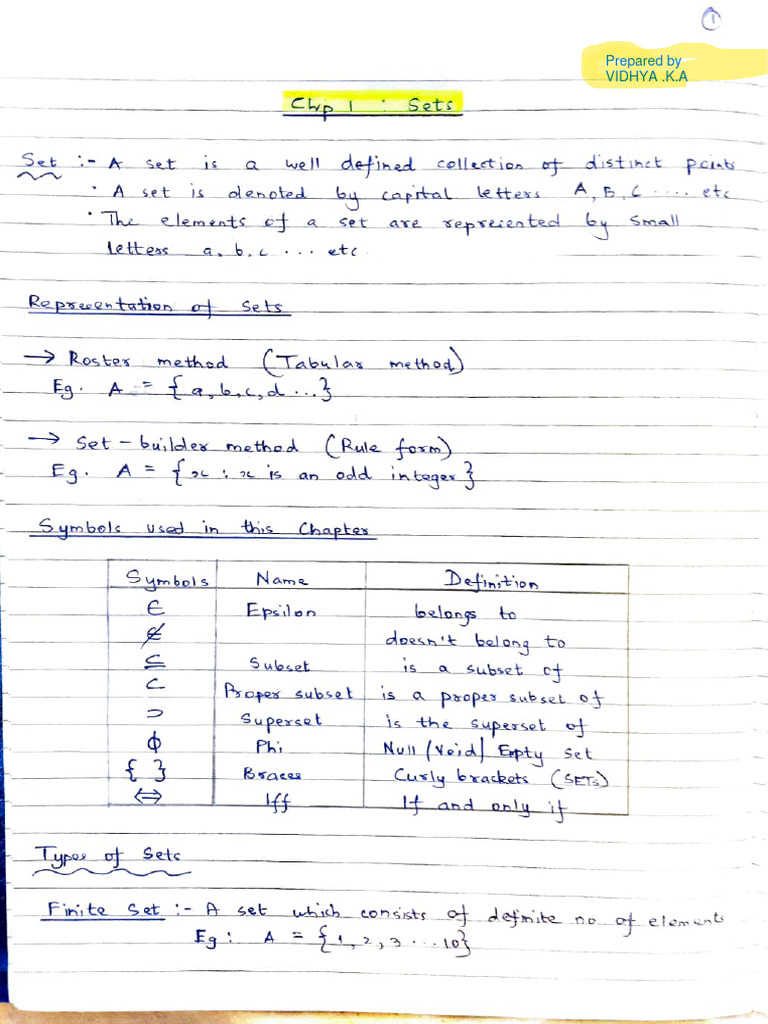 1
Prepared by
VIDHYA .K.A
Chp 1 : Sets
Set :- A set is a well defined collection of distinct points
· A set is denoted by capital letters A, B, C .... etc
· The elements of a set are represented by small
letters a, b, c ... etc
Representation of Sets
→ Roster method (Tabular method)
Eg. A = {a, b, c, d ...}
→ Set-builder method (Rule form)
Eg. A = {x : x is an odd integer}
Symbols used in this Chapter
Symbols Name Definition
∈ Epsilon belongs to
∉ doesn't belong to
⊆ Subset is a subset of
⊂ Proper subset is a proper subset of
⊃ Superset is the superset of
ϕ Phi Null/Void/Empty set
{ } Braces Curly brackets (SETs)
⇔ Iff If and only if
Types of Sets
Finite Set :- A set which consists of definite no. of elements
Eg: A = {1, 2, 3 ... 10}